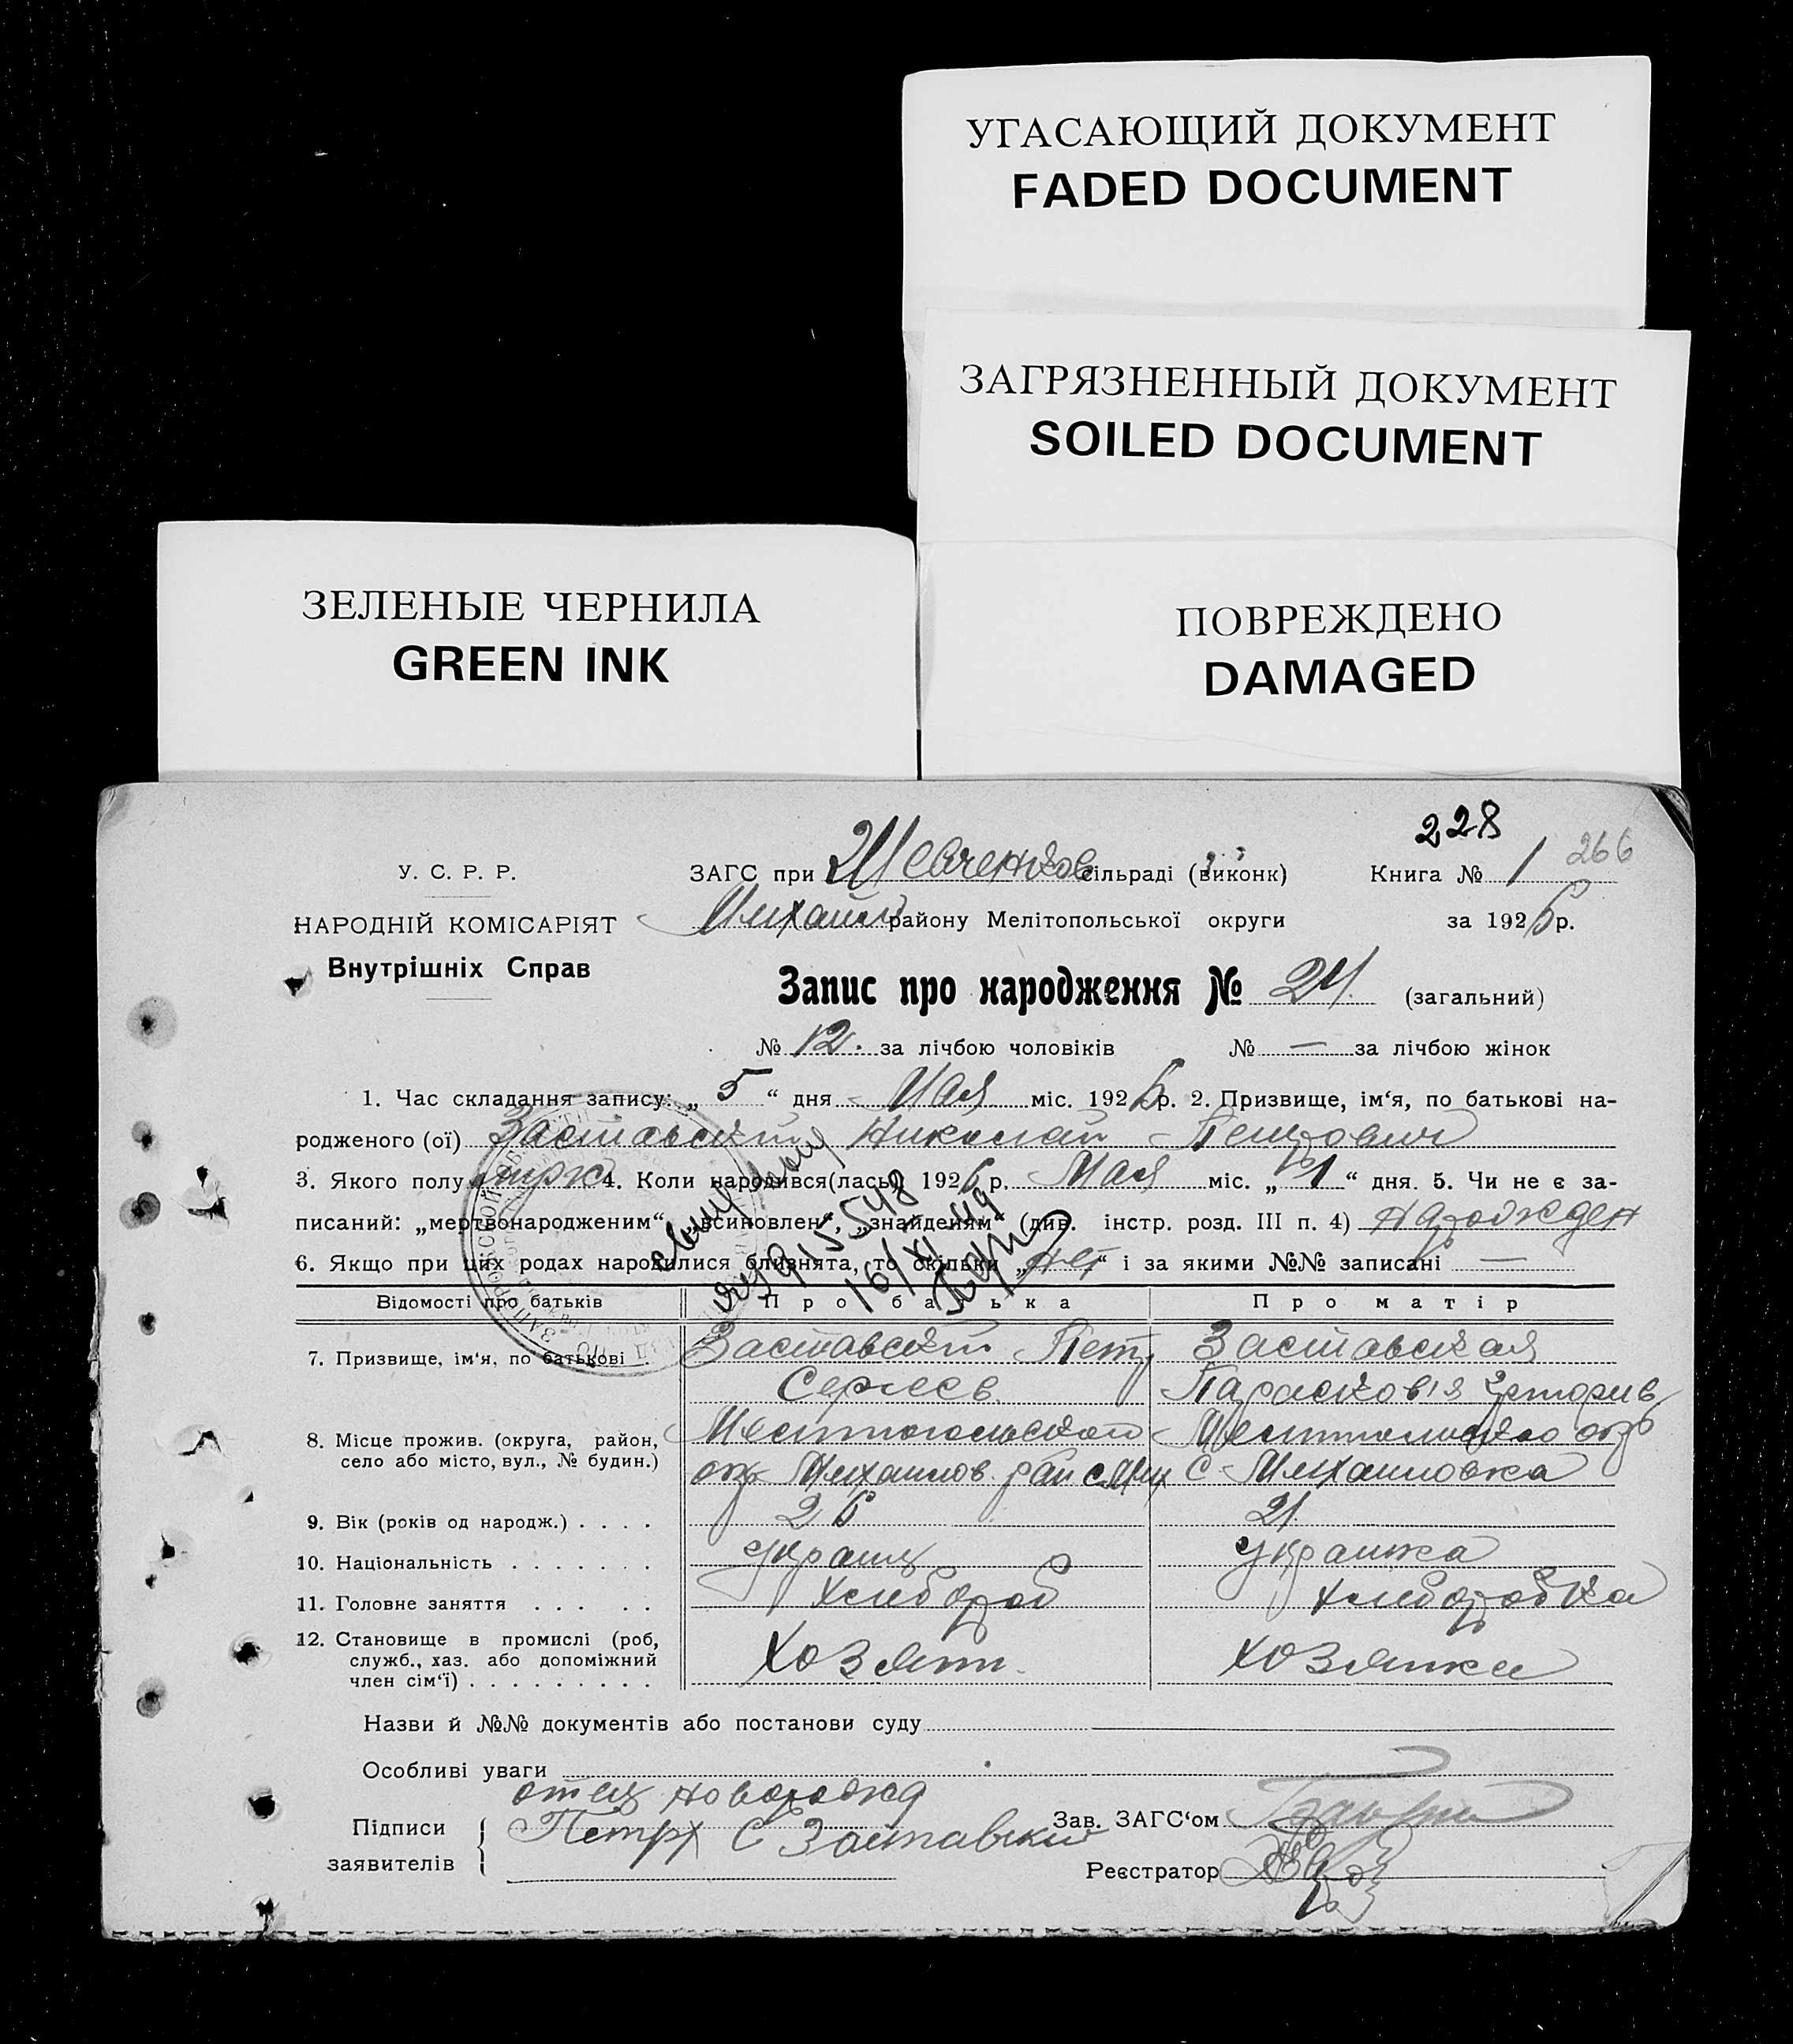 УГАСАЮЩИЙ ДОКУМЕНТ
FADED DOCUMENT
ЗАГРЯЗНЕННЫЙ ДОКУМЕНТ
SOILED DOCUMENT
ЗЕЛЕНЫЕ ЧЕРНИЛА
GREEN INK
ПОВРЕЖДЕНО
DAMAGED
228
У. С. Р. Р.
ЗАГС при Шевченков сільраді (виконк)
Книга № 1 266
НАРОДНІЙ КОМІСАРІЯТ
Внутрішніх Справ
Михайл району Мелітопольської округи
за 1926 р.
Запис про народження № 24. (загальний)
№ 12. за лічбою чоловіків № — за лічбою жінок
1. Час складання запису: „ 5 “ дня Мая міс. 1926 р. 2. Призвище, ім‘я, по батькові на-
родженого (ої) Заставский Николай Петрович
3. Якого полу муж 4. Коли народився(лась) 1926 р. Мая міс. „ 1 “ дня. 5. Чи не є за-
писаний: „мертвонародженим“, „всиновлен“, „знайденям“ (див. інстр. розд. III п. 4) Народжден
6. Якщо при цих родах народилися близнята, то скільки „нет“ і за якими №№ записані —
16/XI 49
Відомості про батьків
Про батька
Про матір
7. Призвище, ім‘я, по батькові .
Заставский Петр
Сергеев.
Заставская
Парасковія
8. Місце прожив. (округа, район,
село або місто, вул., № будин.)
Мелитопольской
окр Михайлов. рай с Мих
Мелитопольско окр
с Михайловка
9. Вік (років од народж.) . . . .
26
21.
10. Національність . . . . . . .
украин
украинка
11. Головне заняття . . . . .
хлебороб
хлеборобка
12. Становище в промислі (роб,
служб., хаз. або допоміжний
член сім‘ї) . . . . . . . . .
хозяин.
хозяика
Назви й №№ документів або постанови суду
Особливі уваги
отец новорожд
Підписи
заявителів
Петр С Заставский
Зав. ЗАГС‘ом
Реєстратор